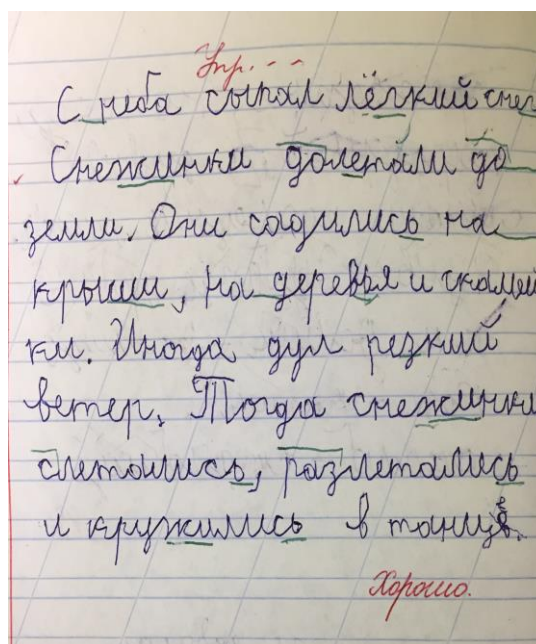 Упр. - -
С неба сыпал лёгкий снег
Снежинки долетали до
земли. Они садились на
крыши, на деревья и скамей
ки. Иногда дул резкий
ветер. Тогда снежинки
слетались, разлетались
и кружились в танце.
Хорошо.